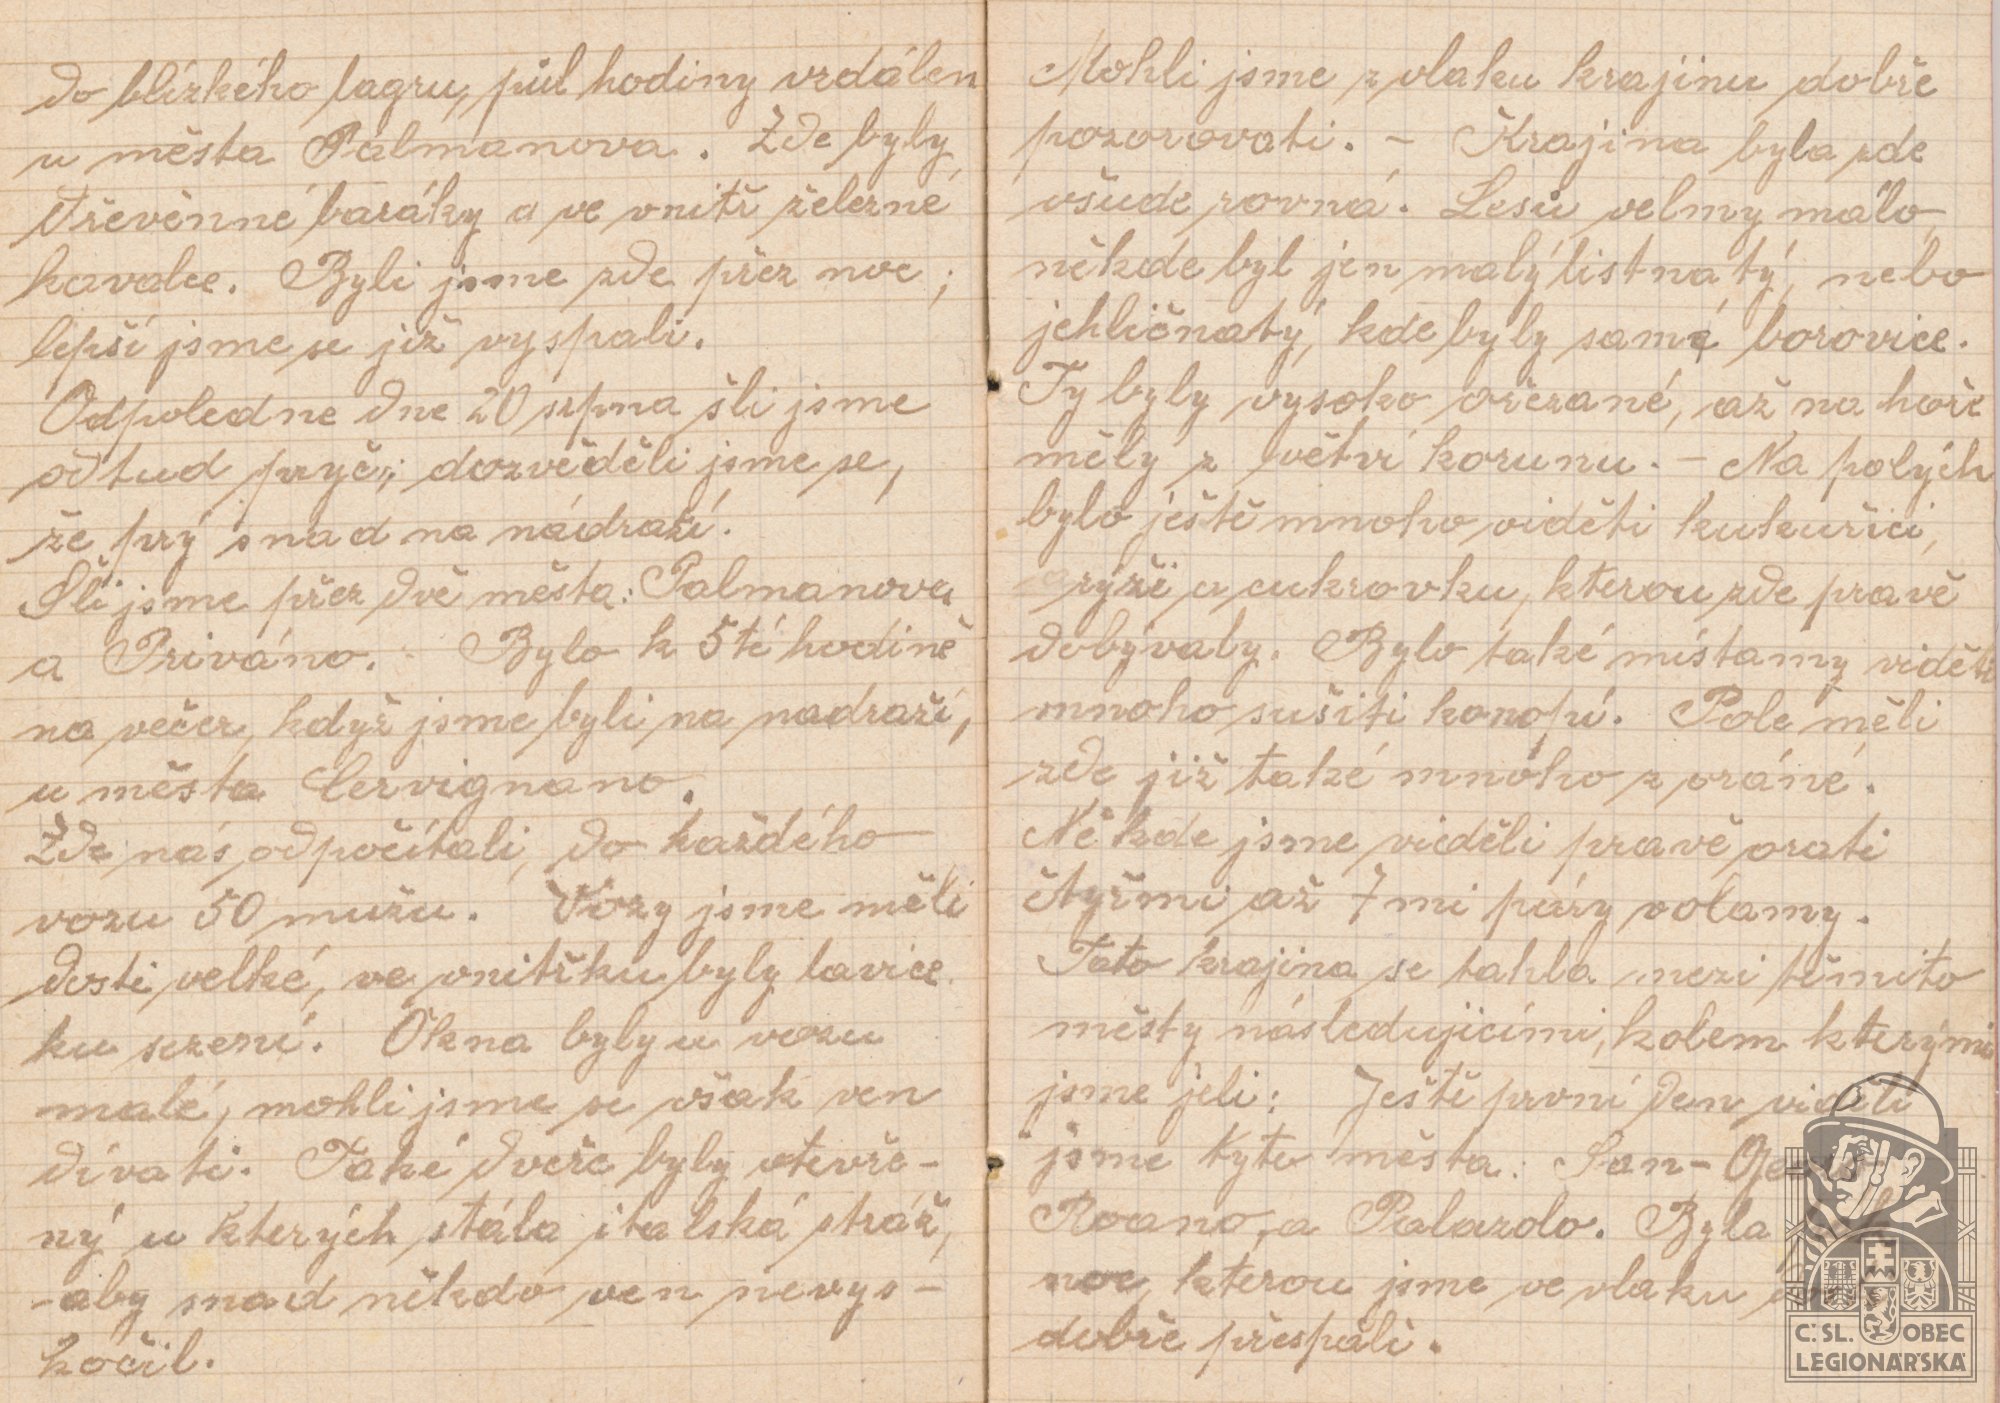 do blízkého lagru, půl hodiny vzdálen
u města Palmanova. Zde byly
dřevěnné baráky a ve vnitř železné
kavalce. Byli jsme zde přez noc;
lepší jsme se již vyspali.
Odpoledne dne 20 srpna šli jsme
odtud pryč; dozvěděli jsme se,
že prý snad na nádraží.
Šli jsme přez dvě města: Palmanova
a Priváno. - Bylo k 5té hodině
na večer, když jsme byli na nadraží,
u města Cervignano.
Zde nás odpočítali, do každého
vozu 50 mužu. Vozy jsme měli
dosti velké, ve vnitřku byly lavice
ku sezení. Okna byly u vozu
malé, mohli jsme se však ven
dívati. Také dveře byly otevře-
ný u kterých stála italská stráž,
-aby snad někdo ven nevys-
kočil.
Mohli jsme z vlaku krajinu dobře
pozorovati. - Krajina byla zde
všude rovná. Lesů velmy málo,
někde byl jen malý listnatý, nebo
jehličnatý, kde byly samé borovice.
Ty byly vysoko ořezané, až na hoře
měly z větví korunu. - Na polých
bylo ještě mnoho viděti kukuřici,
rýži a cukrovku, kterou zde pravě
dobývaly. Bylo také místamy viděti
mnoho sušiti konopí. Pole měli
zde již také mnoho zoráné.
Někde jsme viděli pravě orati
čtyřmi až 7mi páry volamy.
Tato krajina se tahla mezi těmito
městy následujícími, kolem kterými
jsme jeli: Ještě první den viděli
jsme tyto města: San-
Roano, a Palazolo. Byla
noc, kterou jsme ve vlaku
dobře přespáli.
Č. SL. OBEC
LEGIONÁŘSKÁ